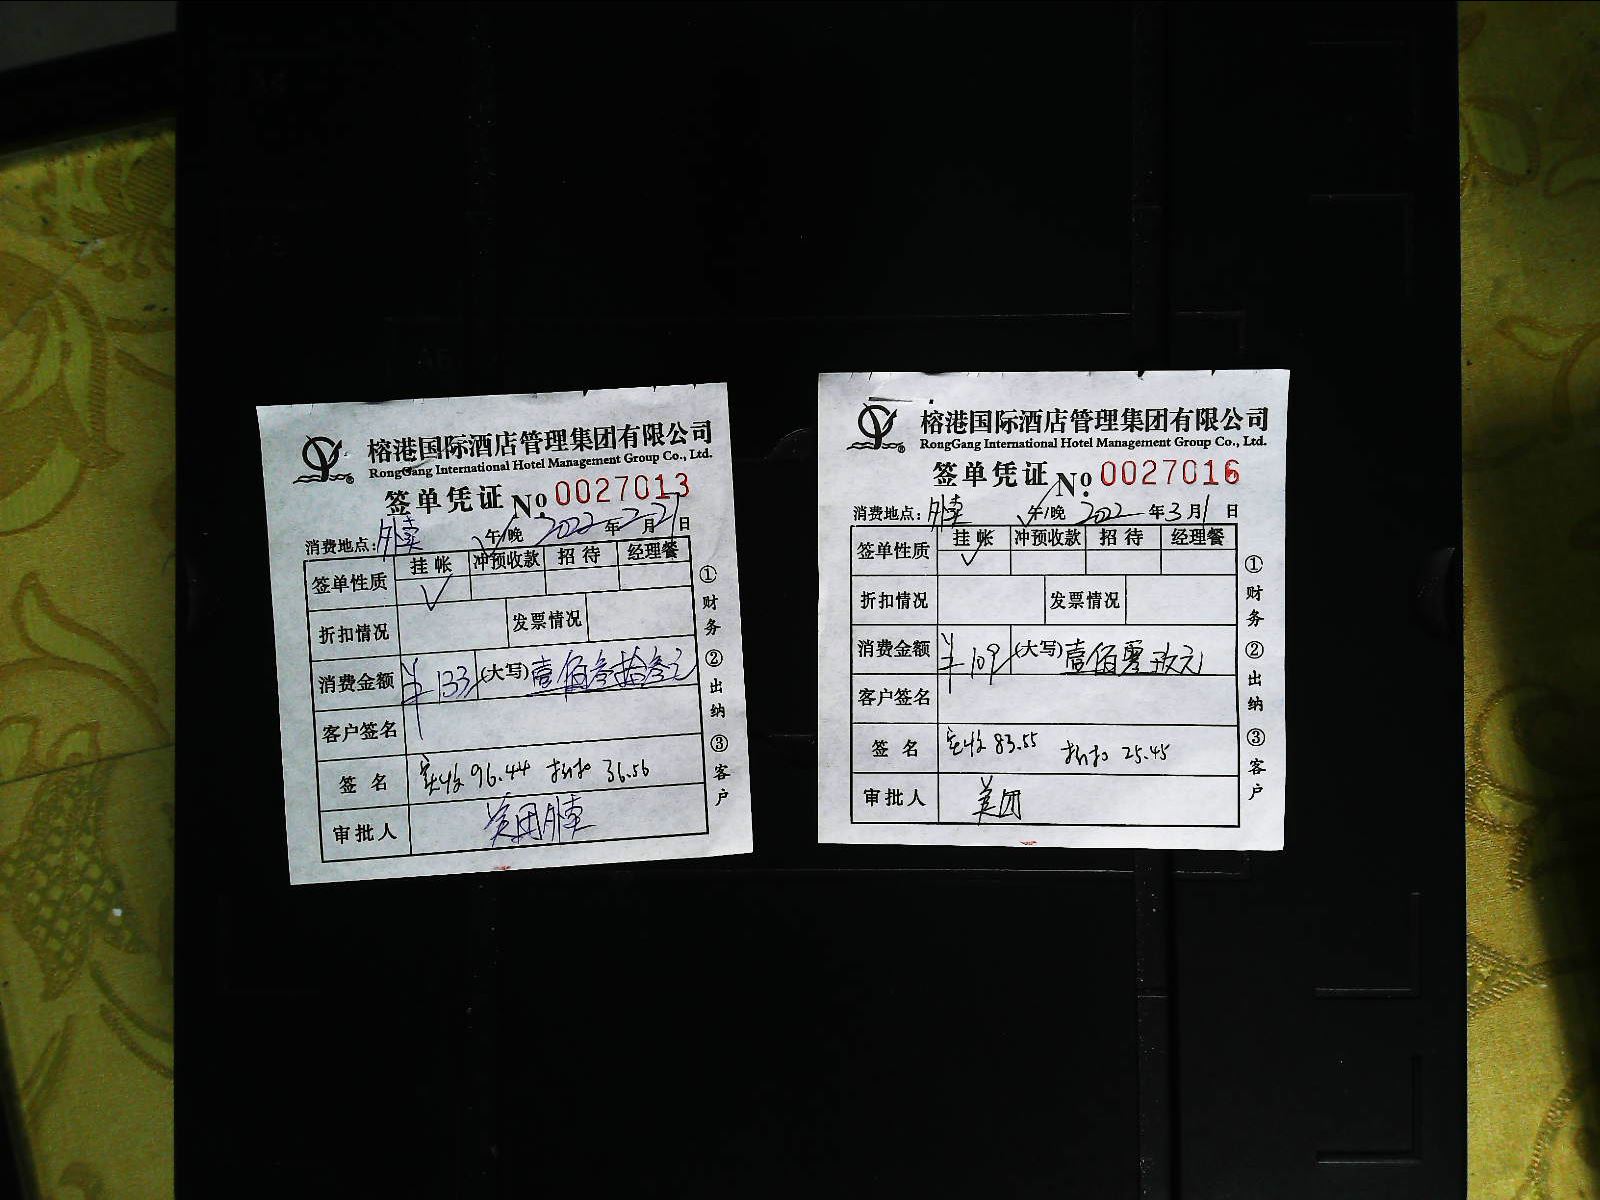 榕港国际酒店管理集团有限公司
RongGang International Hotel Management Group Co., Ltd.
签单凭证 No. 0027013
消费地点：外卖 午/晚 2022年2月21日
签单性质 挂帐 冲预收款 招待 经理餐
✓
折扣情况 发票情况
消费金额 ¥133 (大写) 壹佰叁拾叁元
客户签名
签名 实收 96.44 折扣 36.56
审批人 美团外卖
①财务 ②出纳 ③客户
榕港国际酒店管理集团有限公司
RongGang International Hotel Management Group Co., Ltd.
签单凭证 No. 0027016
消费地点：外卖 午/晚 2022年3月1日
签单性质 挂帐 冲预收款 招待 经理餐
✓
折扣情况 发票情况
消费金额 ¥109 (大写) 壹佰零玖元
客户签名
签名 实收 83.55 折扣 25.45
审批人 美团
①财务 ②出纳 ③客户